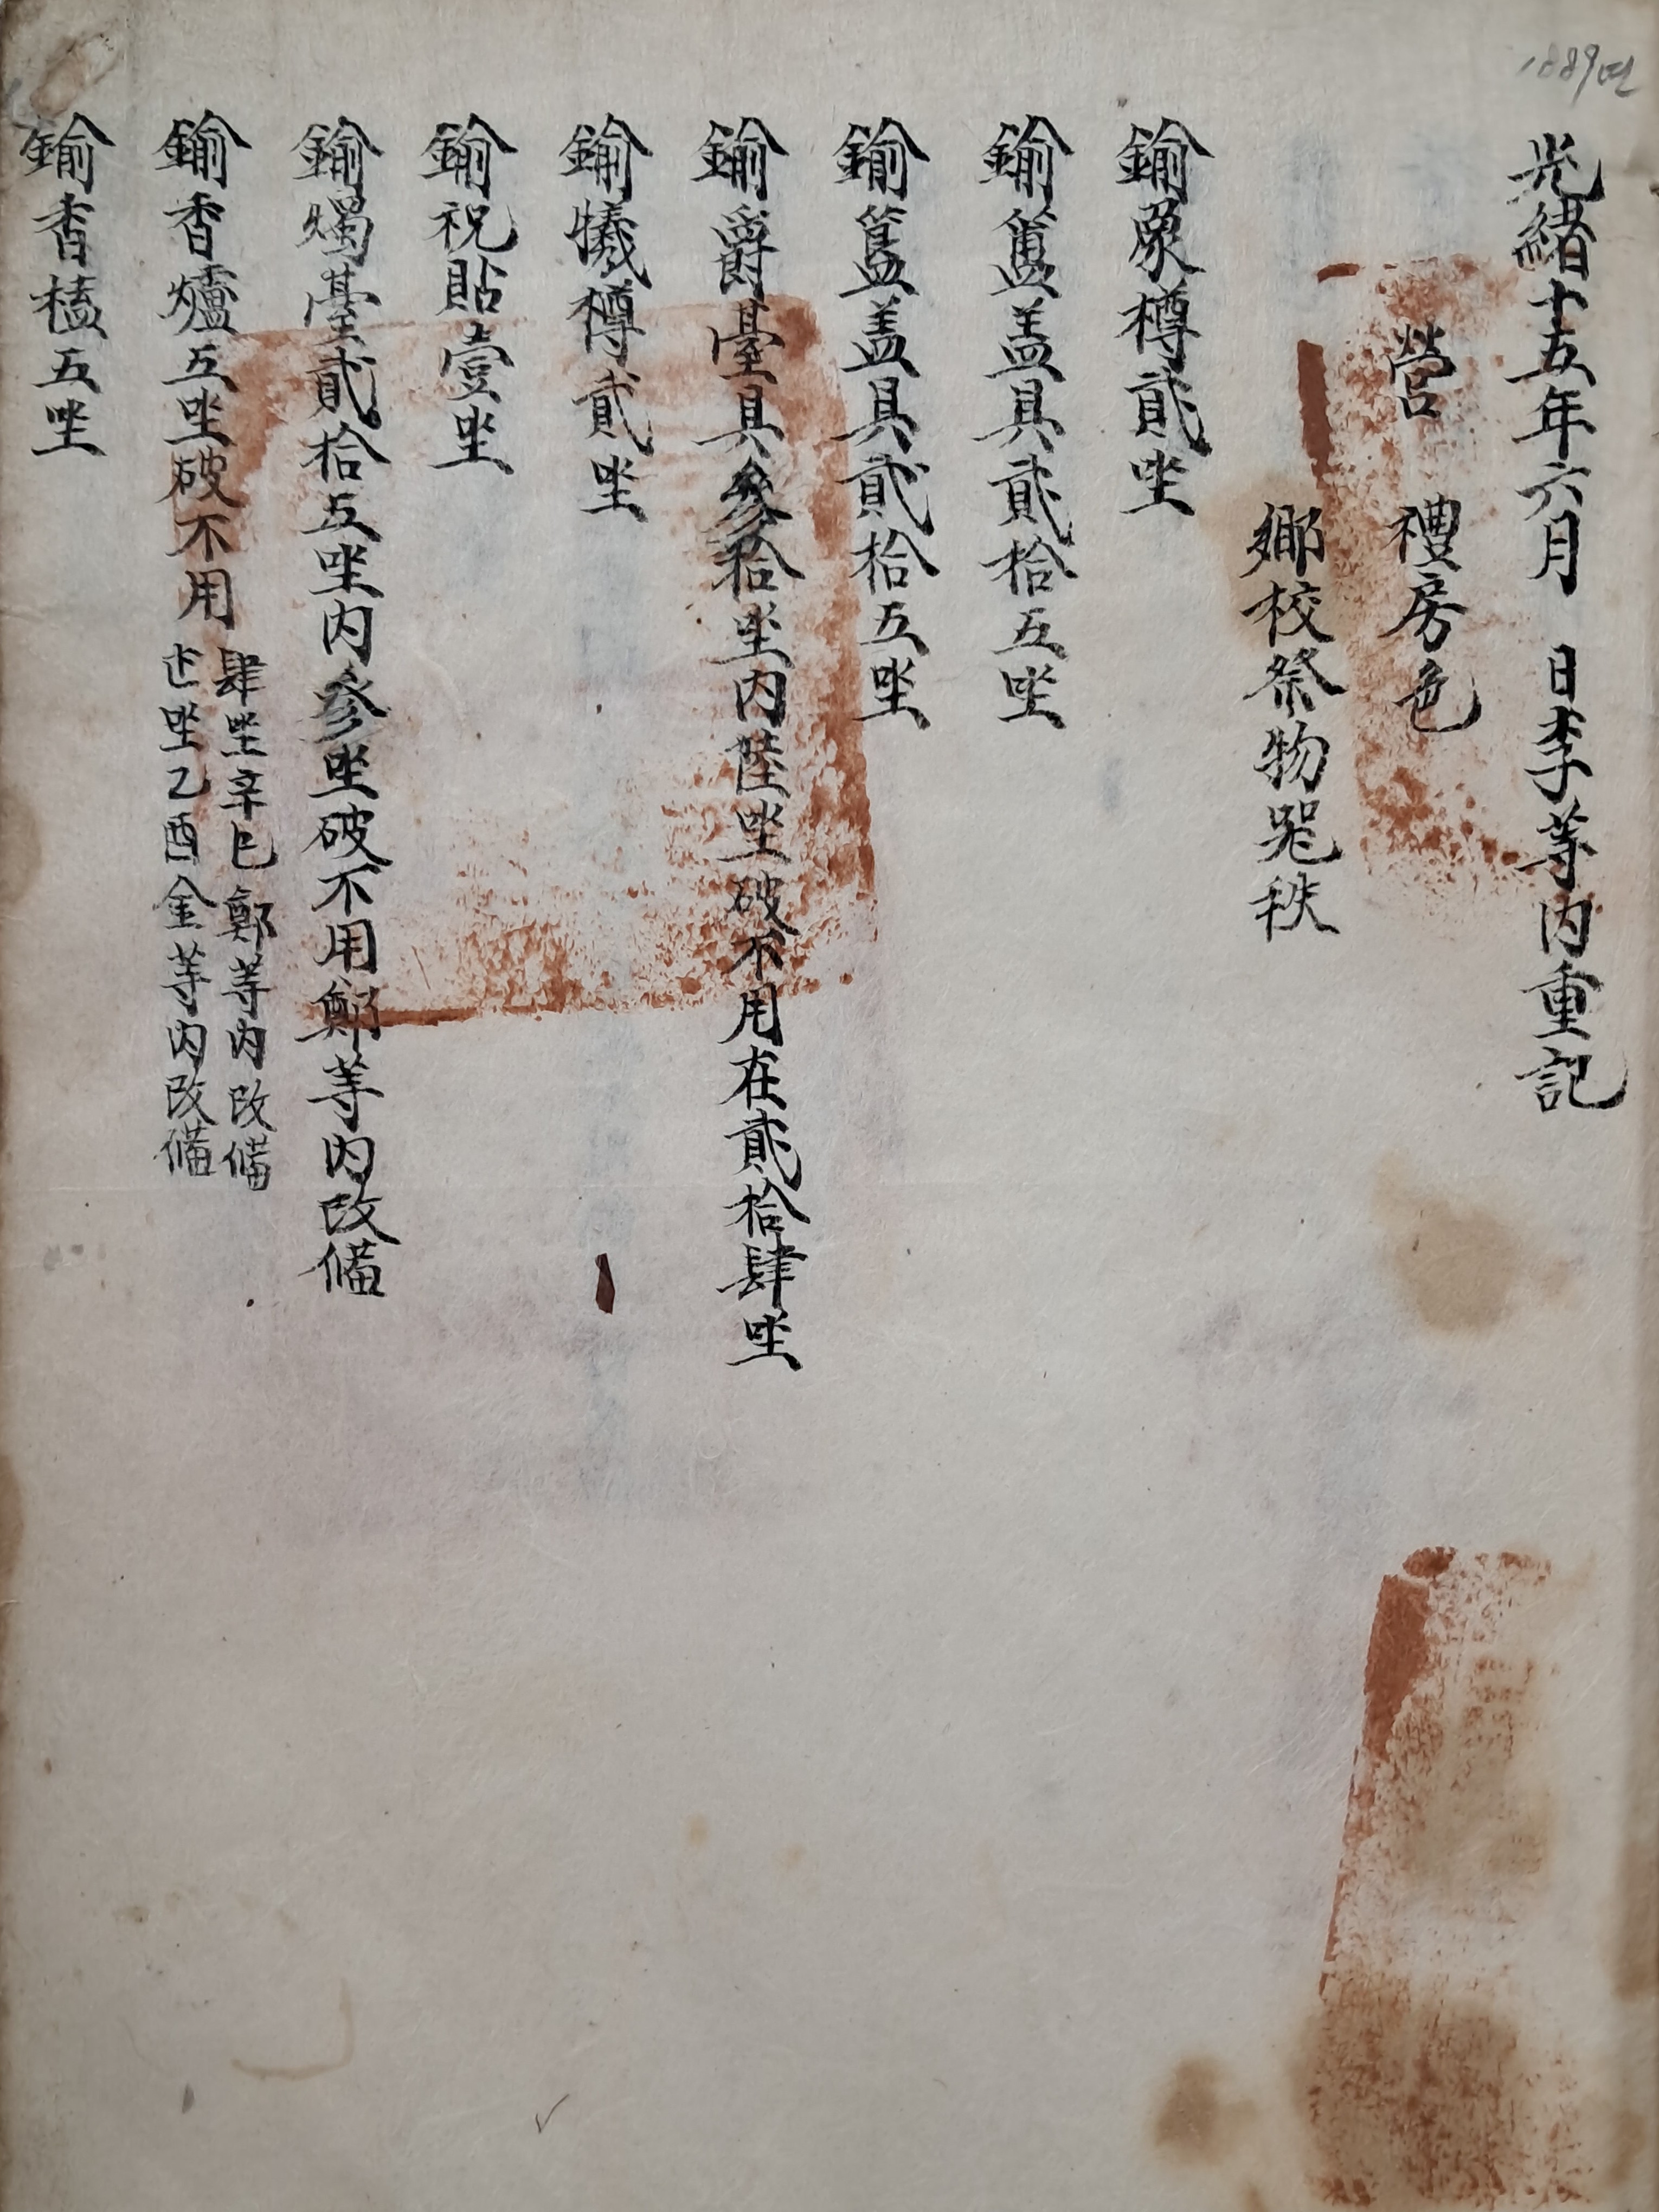 1889년
光緖十五年六月 日李等內重記
營 禮房色
鄕校祭物噐秩
鍮象樽貳坐
鍮簠盖具貳拾五坐
鍮簋盖具貳拾五坐
鍮爵臺具參拾坐內陸坐破不用在貳拾肆坐
鍮犧樽貳坐
鍮祝貼壹坐
鍮燭臺貳拾五坐內參坐破不用鄭等內改備
鍮香爐五坐破不用
肆坐辛巳鄭等內改備
坐乙酉金等內改備
鍮香榼五坐